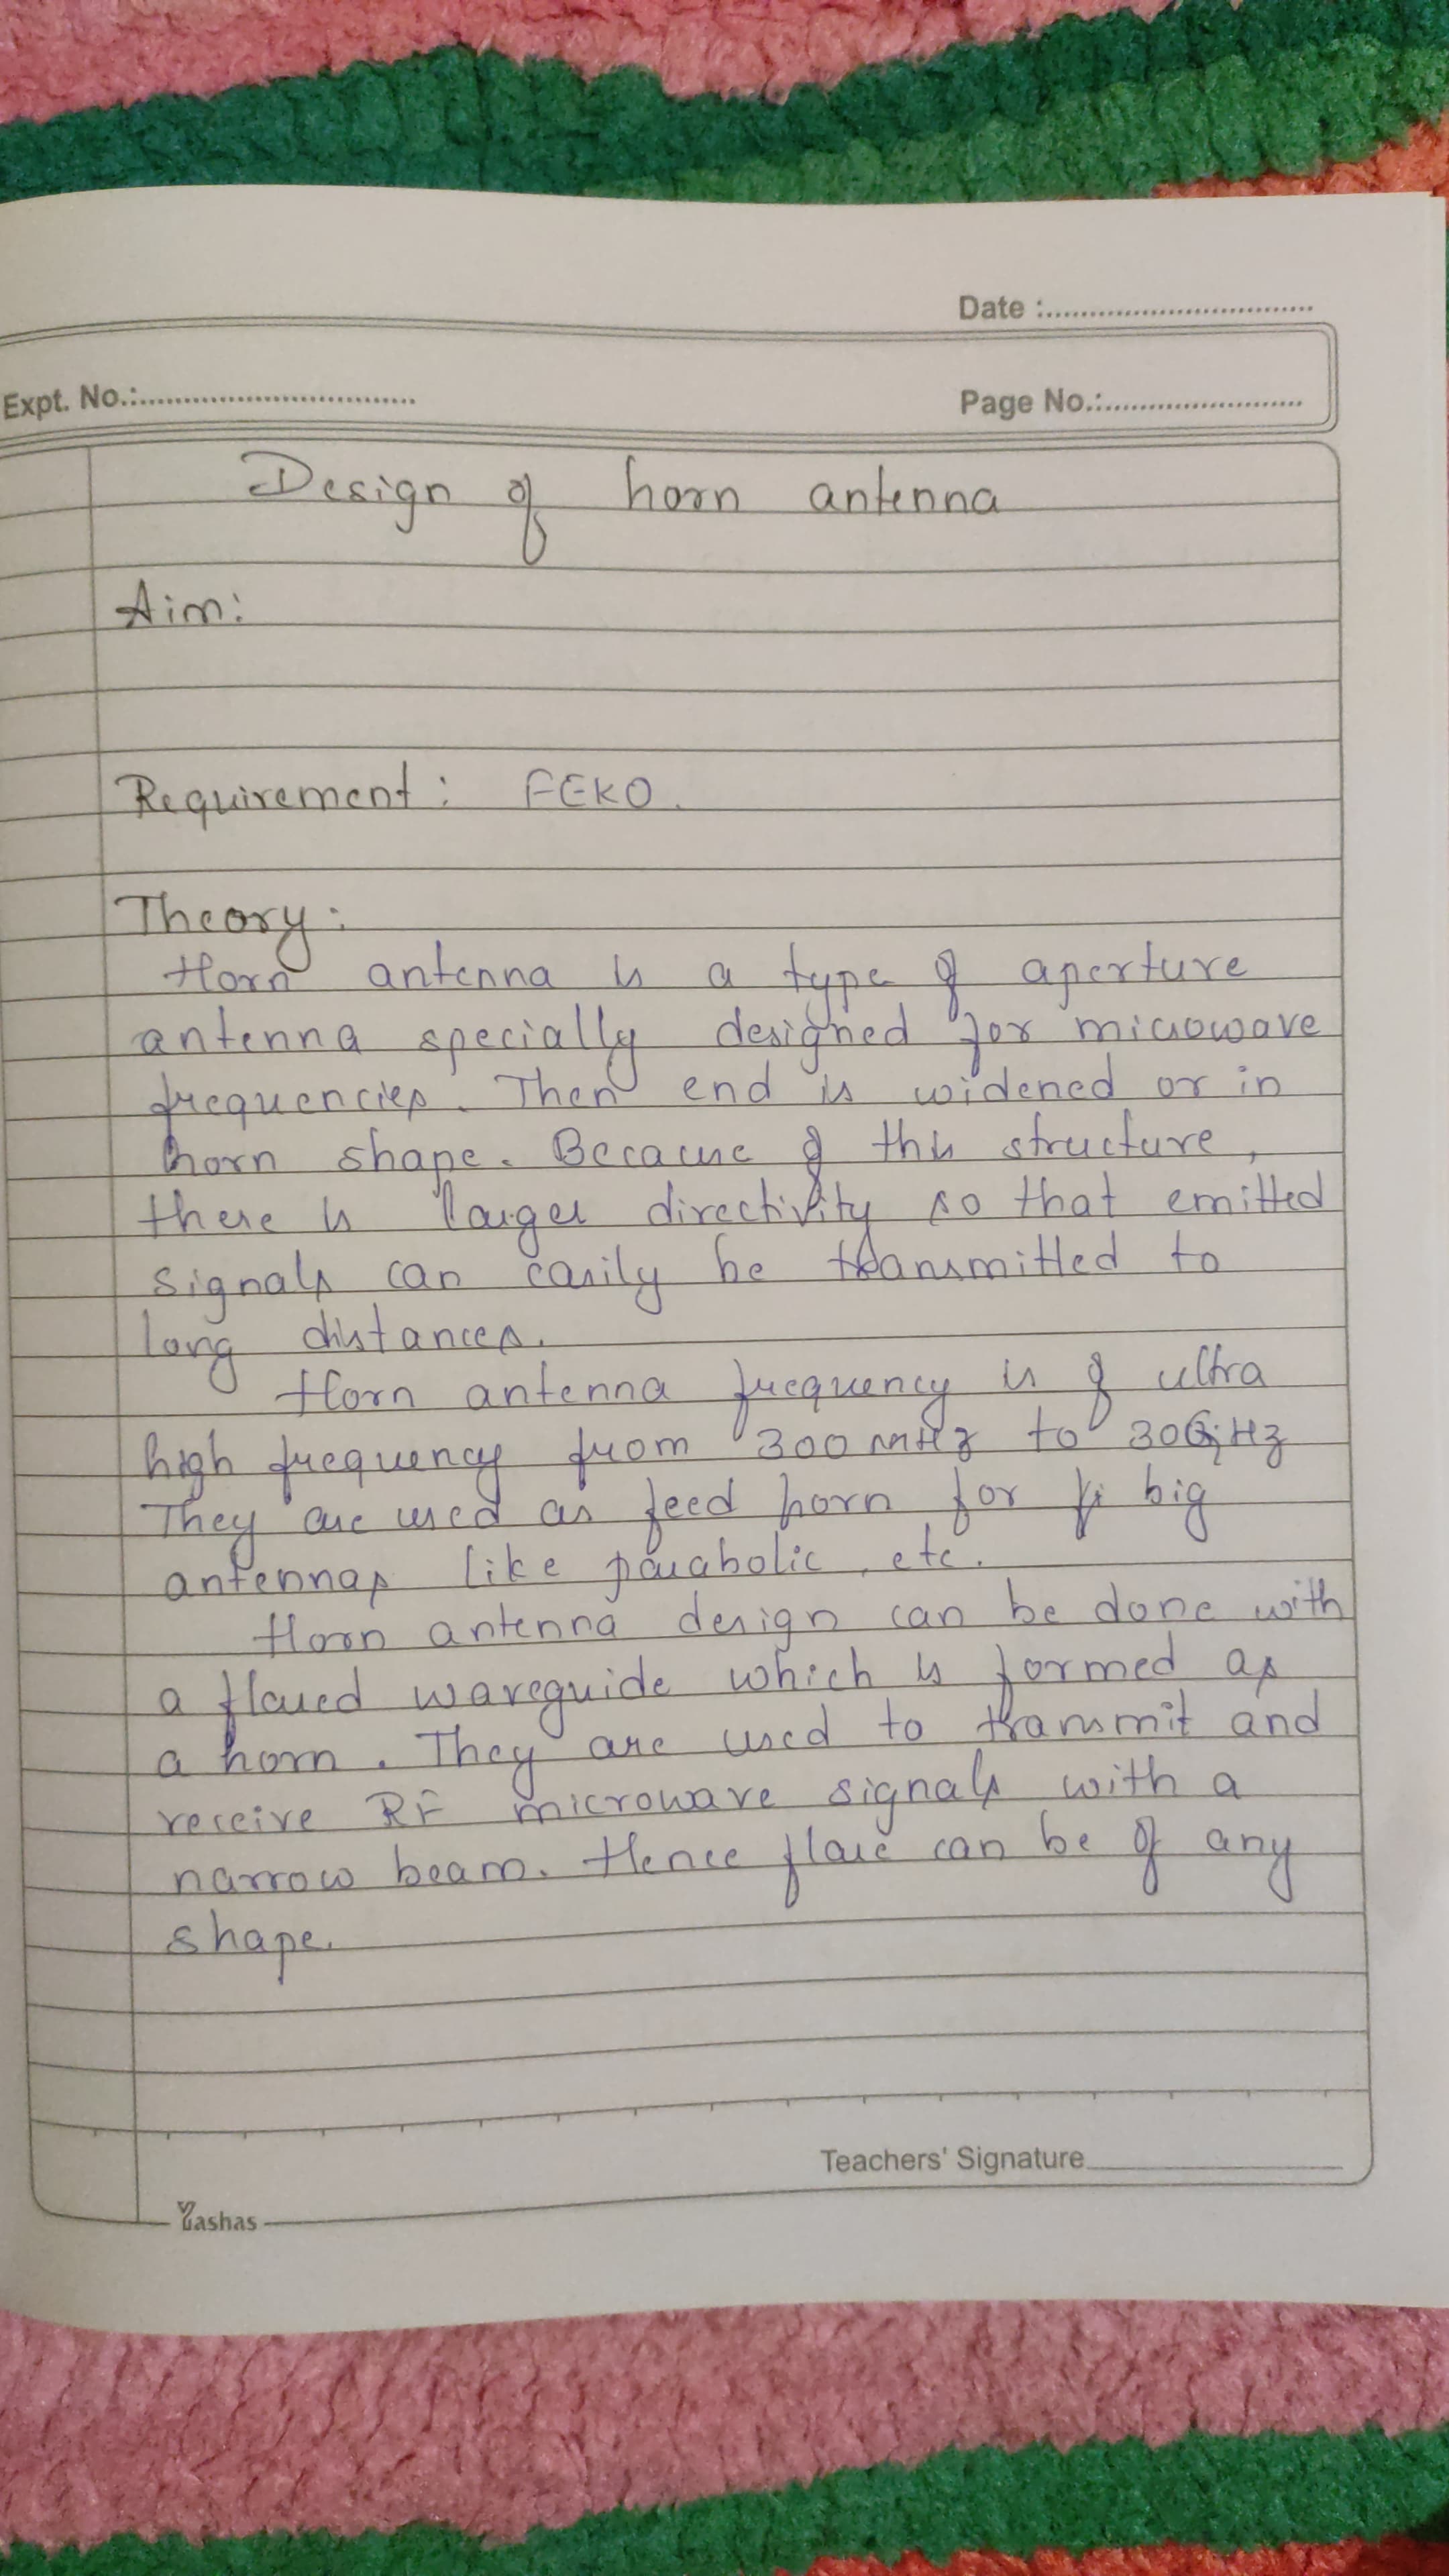 Date :
Expt. No.:
Page No.:
Design of horn antenna
Aim:
Requirement : FEKO.
Theory :
Horn antenna is a type of aperture
antenna specially designed for microwave
frequencies. Then end is widened or in
horn shape. Because of this structure,
there is larger directivity so that emitted
signals can easily be transmitted to
long distances.
Horn antenna frequency is of ultra
high frequency from 300 MHz to 30GHz
They are used as feed horn for big
antennas like parabolic, etc.
Horn antenna design can be done with
a flared waveguide which is formed as
a horn. They are used to transmit and
receive RF microwave signals with a
narrow beam. Hence flare can be of any
shape.
Teachers' Signature
Yashas